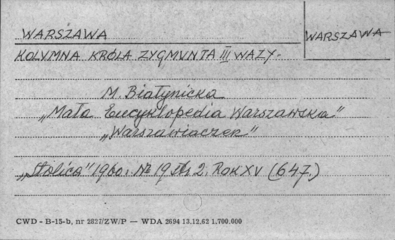 WARSZAWA
WARSZAWA
KOLUMNA KRÓLA ZYGMUNTA III WAZY.
M. Białynicka
„Mała Encyklopedia Warszawska"
„Warszawiaczek"
„Stolica" 1960r. № 19 Str. 2. ROK XV (647.)
CWD - B-15-b, nr 2827/ZW/P — WDA 2694 13.12.62 1.700.000